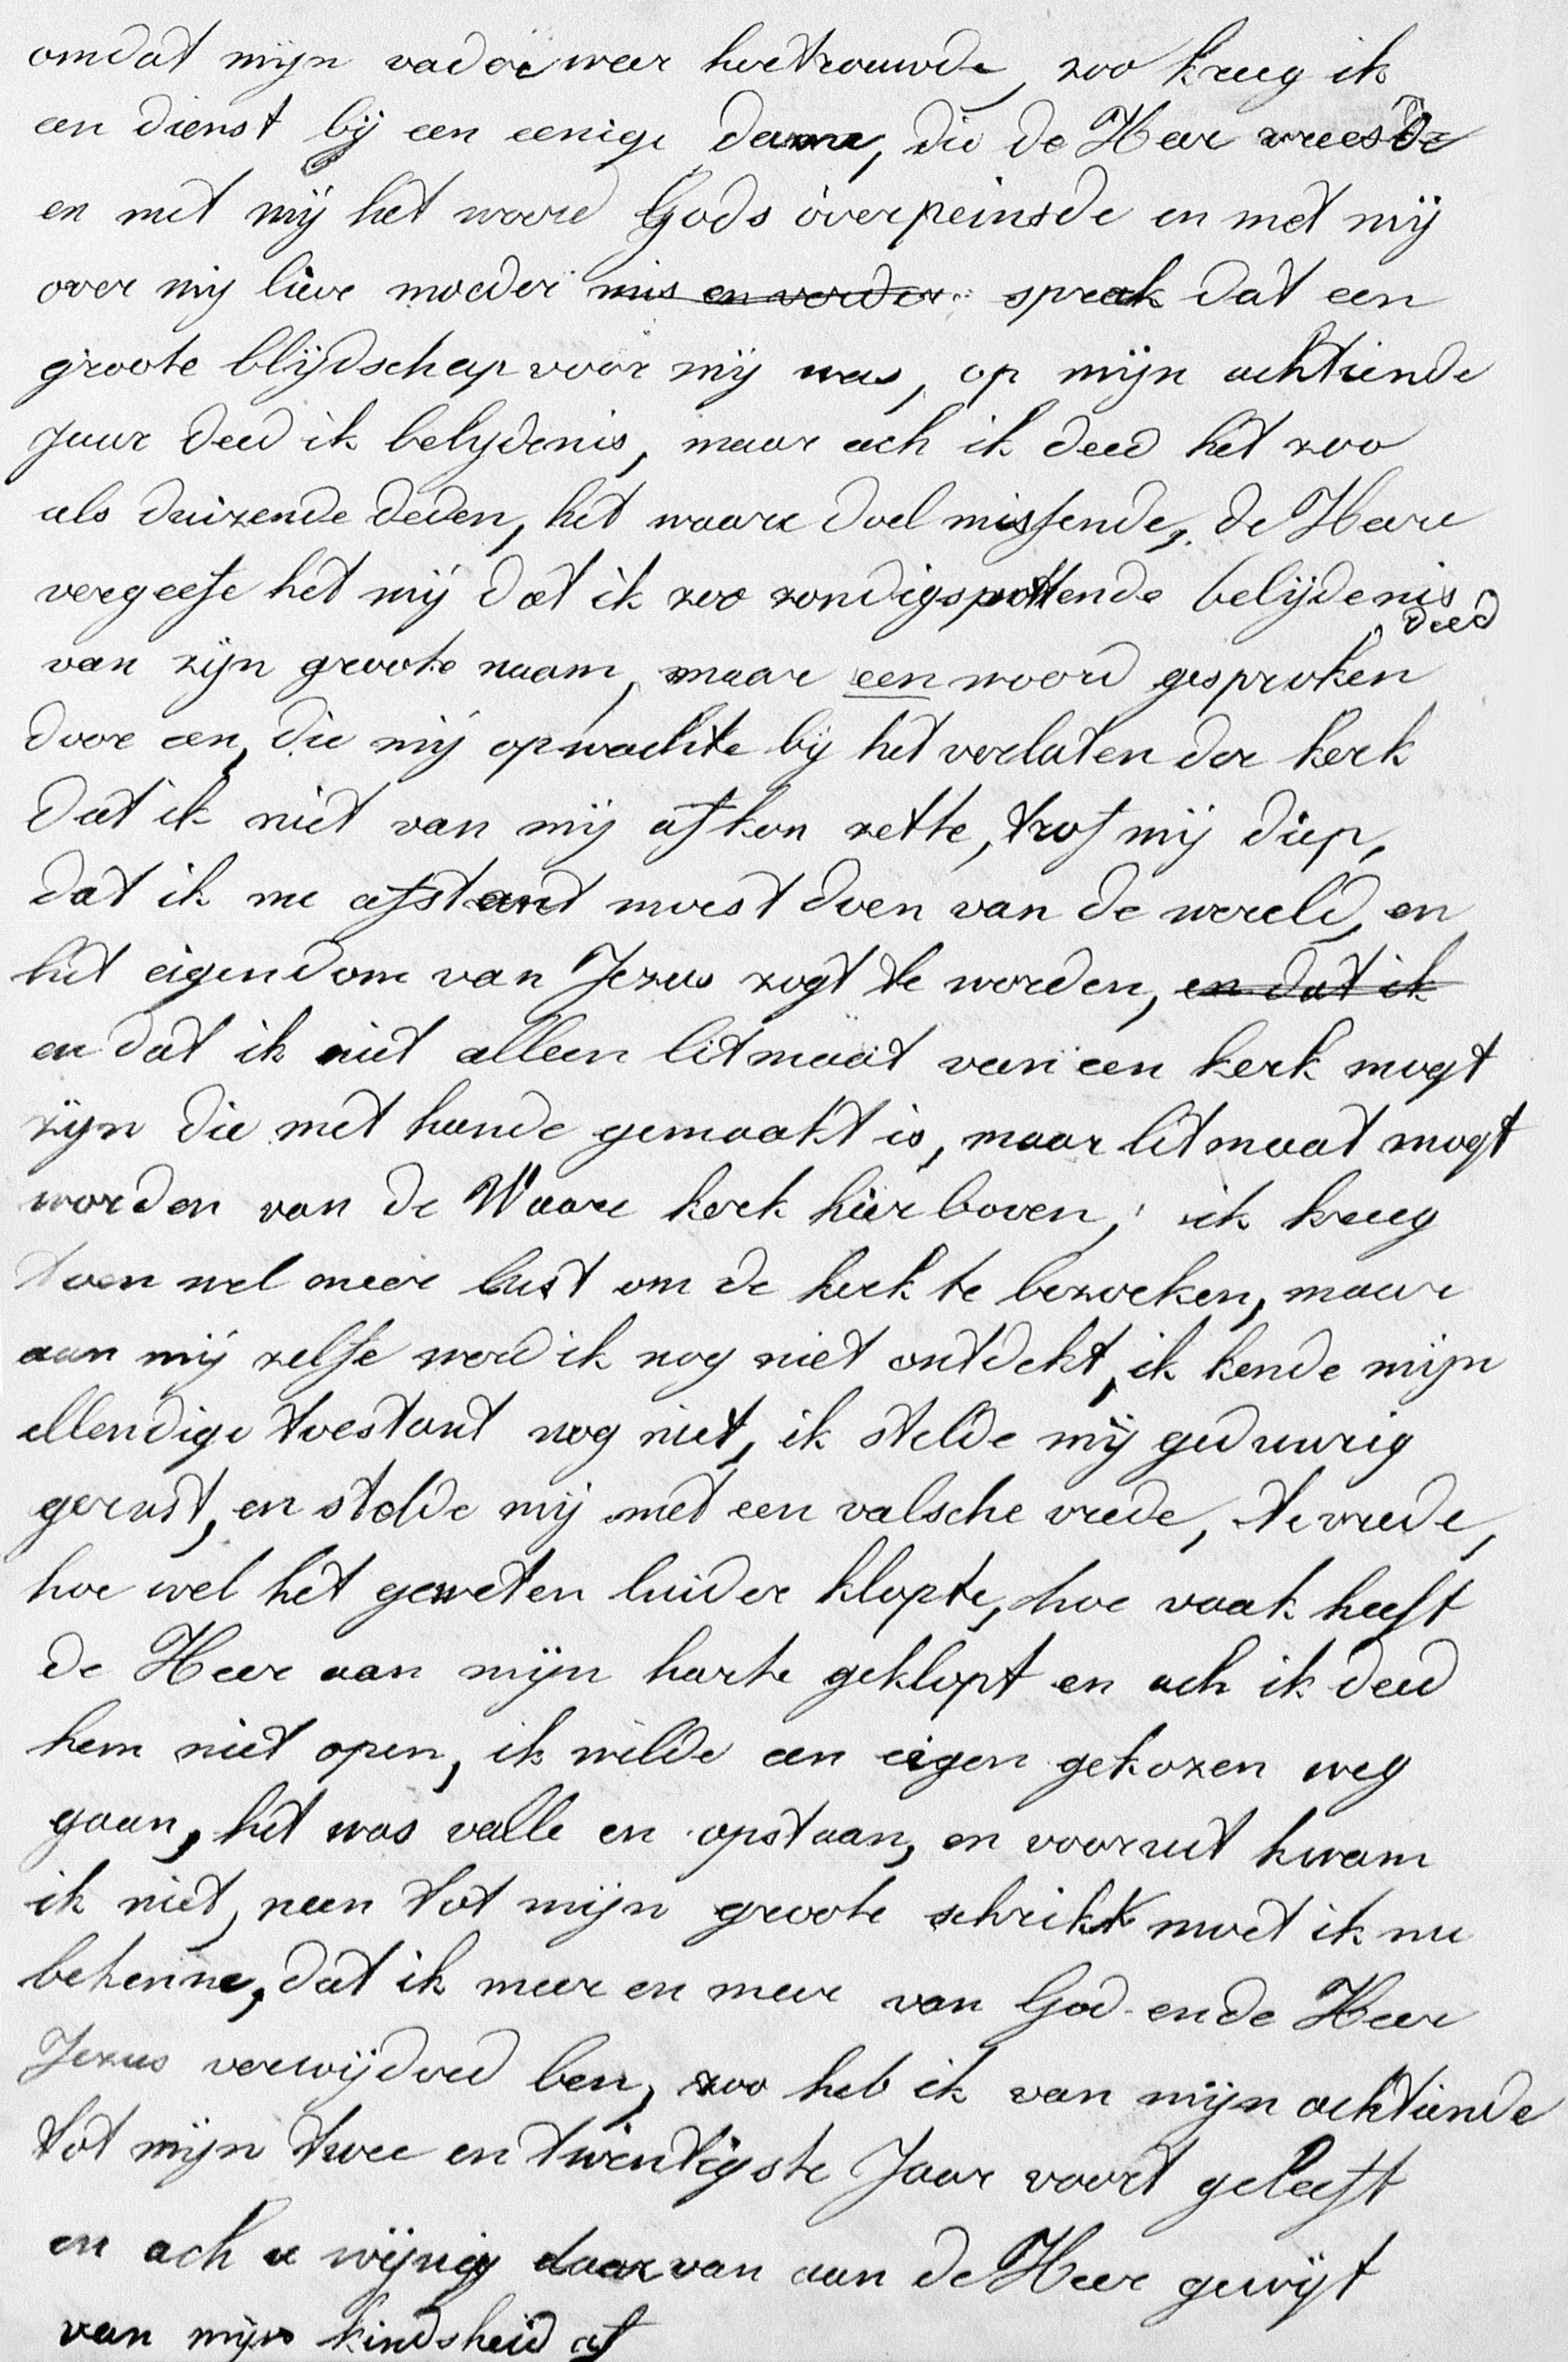 omdat mijn vader weer hertrouwde, zoo kreeg ik
een dienst bij een eenige dame, die de Heer vreesde
en met mij het woord Gods overpeinsde en met mij
over mij lieve moeder mis en verder sprak dat een
groote blijdschap voor mij was, op mijn achtiende
Jaar deed ik belydenis, maar ach ik deed het zoo
als duizende deden, het waare doel missende, de Heere
vergeefe het mij dat ik zoo zondig spottende belijdenis
deed
van zijn groote naam, maar een woord gesproken
door een, die mij opwachte bij het verlaten der kerk
dat ik niet van mij af kon zette, trof mij diep,
dat ik nu afstant moest doen van de wereld, en
het eigendom van Jezus zogt te worden, en dat ik
en dat ik niet alleen litmaat van een kerk mogt
zijn die met hande gemaakt is, maar litmaat mogt
worden van de Waare kerk hier boven, ik kreeg
toen wel meer lust om de kerk te bezoeken, maar
aan mij zelfe werd ik nog niet ontdekt, ik kende mijn
ellendige toestant nog niet, ik stelde mij geduurig
gerust, en stelde mij met een valsche vrede, te vrede,
hoe wel het geweten luider klopte, hoe vaak heeft
de Heer aan mijn harte geklopt en ach ik deed
hem niet open, ik wilde een eigen gekozen weg
gaan, het was valle en opstaan, en vooruit kwam
ik niet, neen tot mijn groote schrikk moet ik nu
bekenne, dat ik meer en meer van God en de Heer
Jezus verwijderd ben, zoo heb ik van mijn achtiende
tot mijn twee en twintigste Jaar voort geleeft
en ach u wijnig daar van aan de Heer gewijt
van mijn kindsheid af